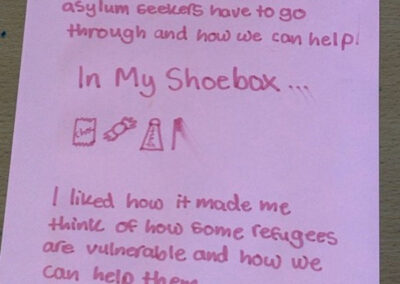 asylum seekers have to go
through and how we can help!
In My Shoebox...
I liked how it made me
think of how some refugees
are vulnerable and how we
can help them